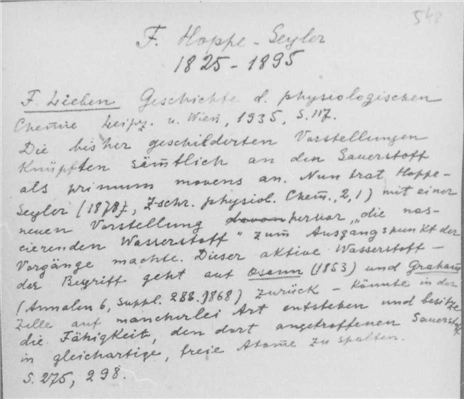 548
F. Hoppe-Seyler
1825-1895
F. Lieben Geschichte d. physiologischen
Chemie Leipz. u. Wien, 1935, S. 117.
Die bisher geschilderten Vorstellungen
knüpften sämtlich an den Sauerstoff
als primum movens an. Nun trat Hoppe-
Seyler (1878), Zschr. physiol. Chem., 2, 1) mit einer
neuen Vorstellung hervor, „die nas-
cierenden Wasserstoff" zum Ausgangspunkt der
Vorgänge machte. Dieser aktive Wasserstoff -
der Begriff geht auf Osann (1853) und Graham
(Annalen 6, Suppl. 288. 1868) zurück - könnte in der
Zelle auf mancherlei Art entstehen und besitze
die Fähigkeit, den dort angetroffenen Sauerstoff
in gleichartige, freie Atome zu spalten.
S. 275, 298.